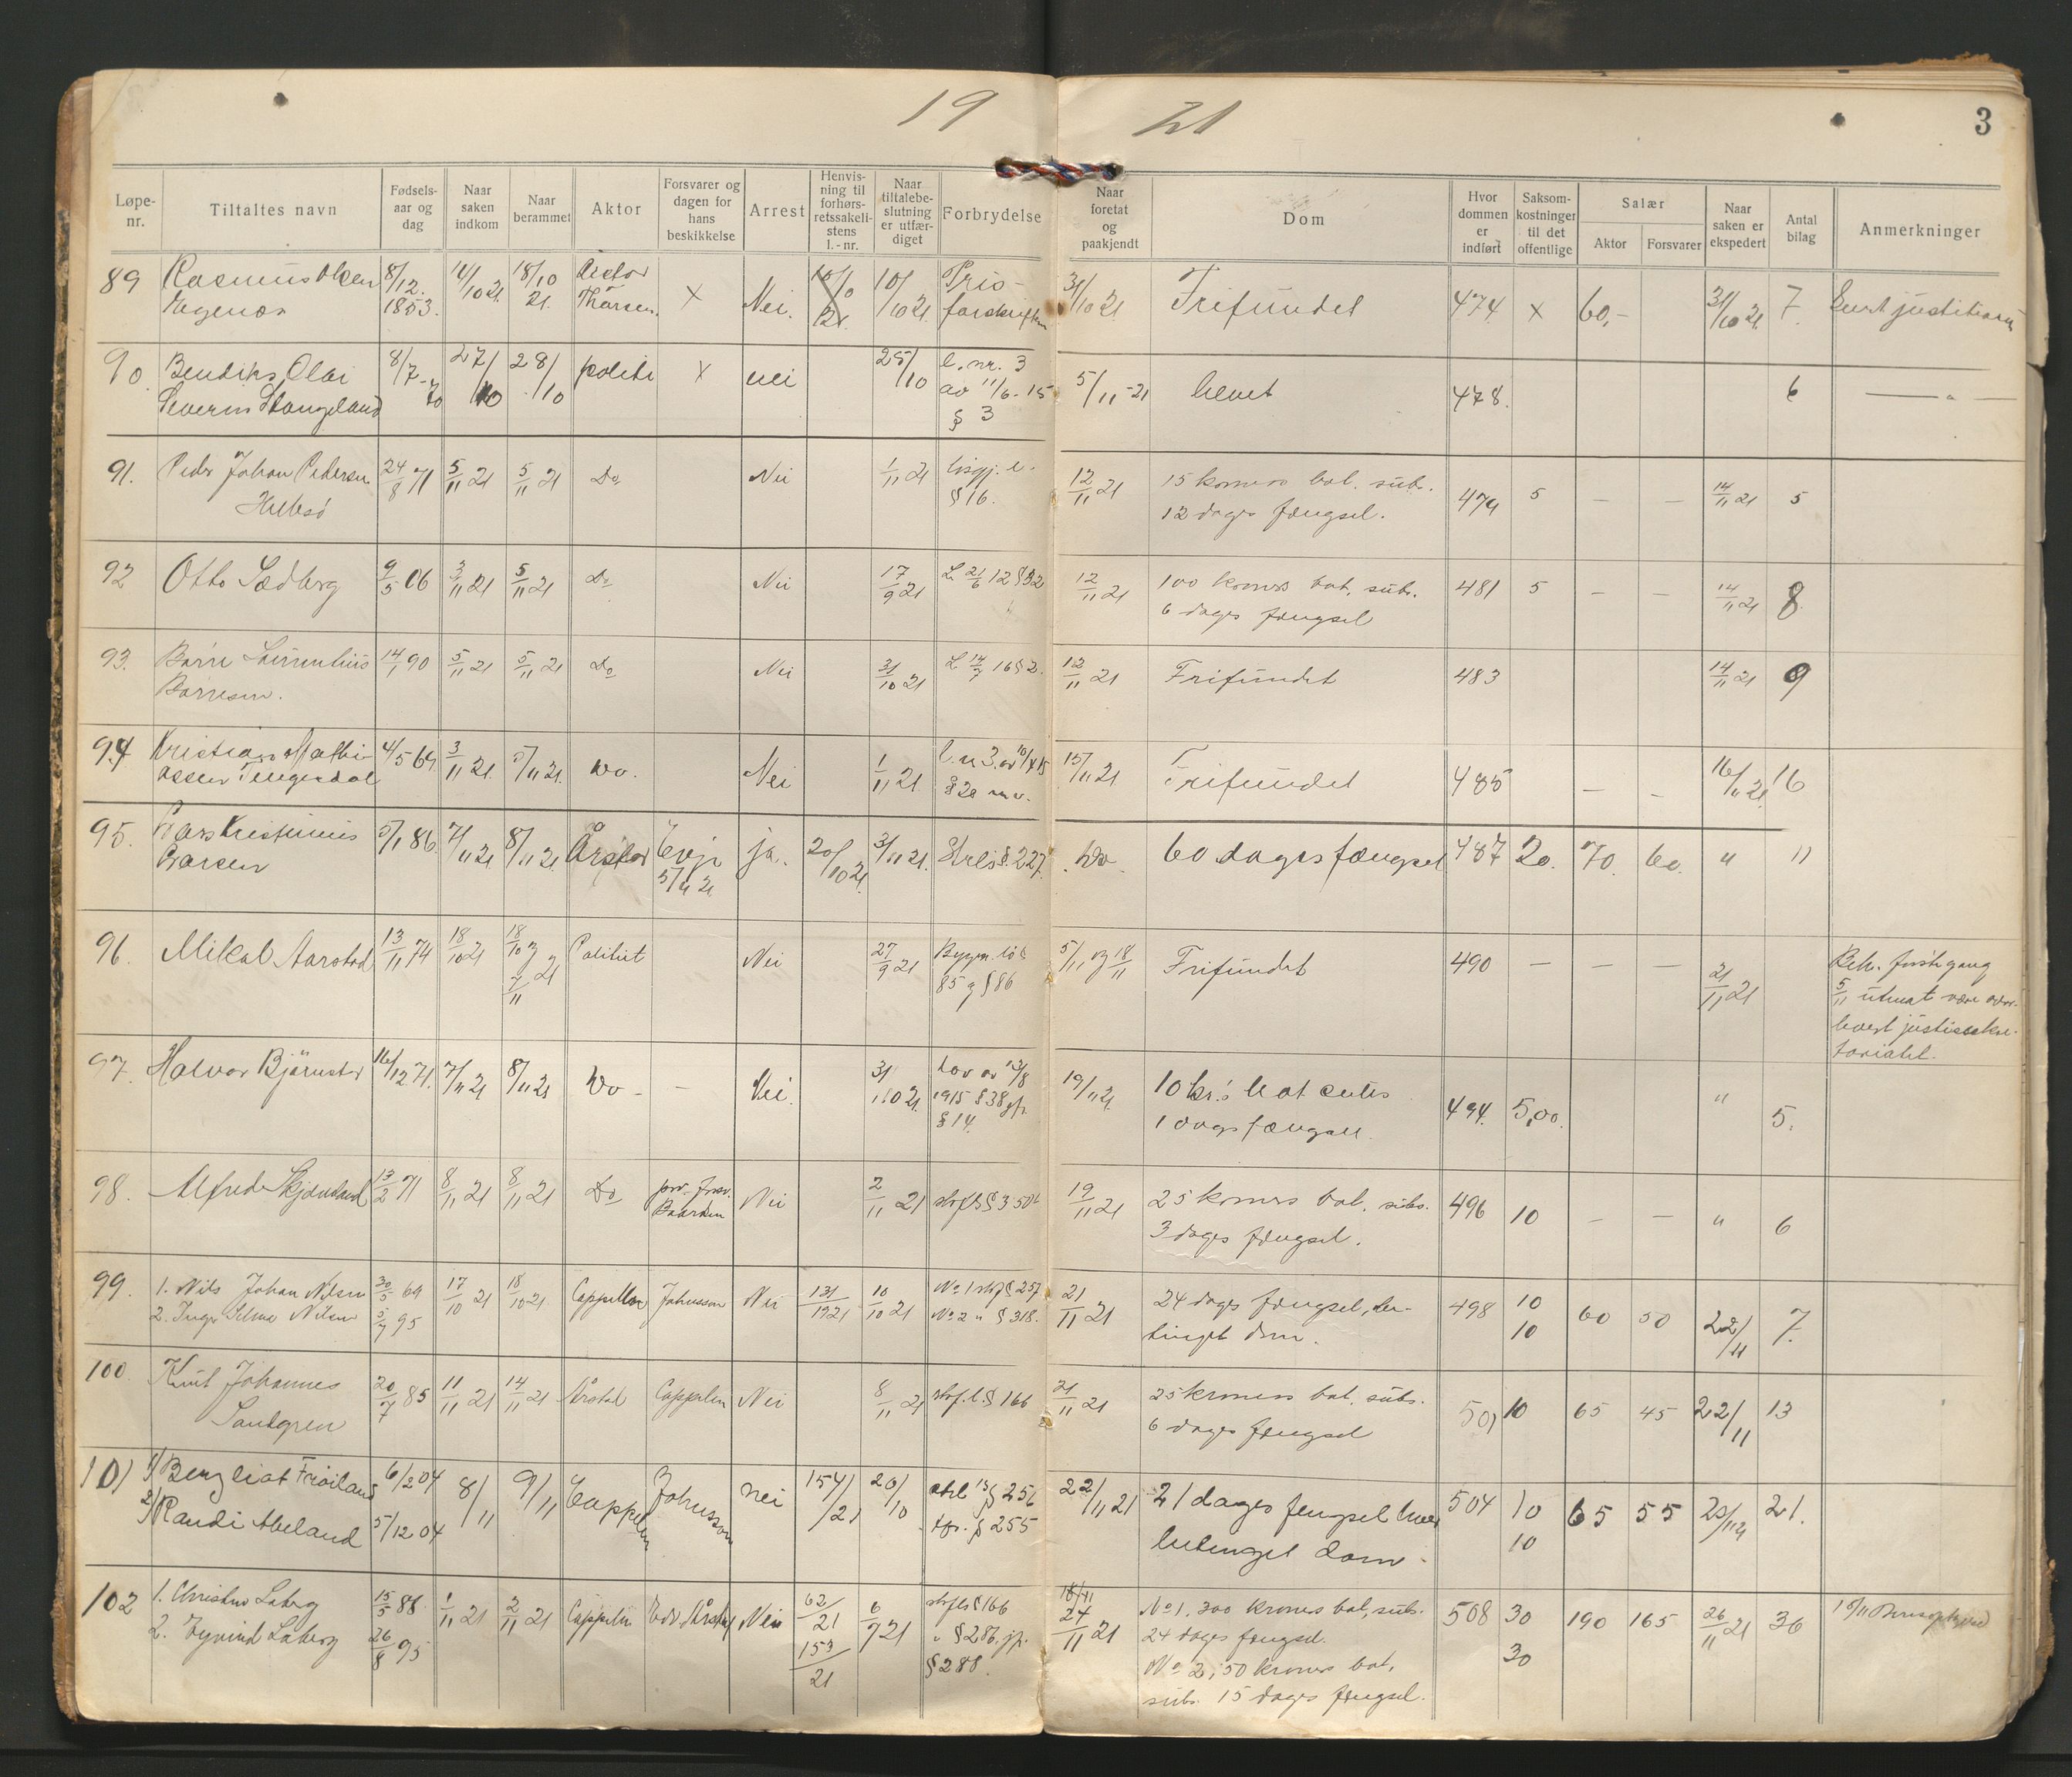 19 21
3
Løpe-nr.
Tiltaltes navn
Fødsels-aar og dag
Naar saken indkom
Naar berammet
Aktor
Forsvarer og dagen for hans beskikkelse
Arrest
Henvisning til forhørsretssakelistens l.-nr.
Naar tiltalebeslutning er utfærdiget
Forbrydelse
Naar foretat og paakjendt
Dom
Hvor dommen er indført
Saksomkostninger til det offentlige
Salær
Aktor
Forsvarer
Naar saken er ekspedert
Antal bilag
Anmerkninger
89 Rasmus Olsen 8/12. 1853. 10/10 21 18/10 21. Thorsen. x Nei. 10/10 21. Pris- 31/10 21. Frifundet 474 x 60,- 31/10 21 7.
90 Bendiks Olai 8/7-70 27/10 28/10 politi x nei 25/10 l. nr. 3 5/11-21 478. 6
Severin Stangeland av 11/6-15
§ 3
91. Peder Johan Pedersen 24/8 71 5/11 21 5/11 21 Do Nei 1/11 21 12/11 21 15 kroners bot. sub. 479 5 — — 14/11 21 5
§ 16. 12 dages fængsel.
92 Otto Sædberg 9/5 06 3/11 21 5/11 21 Do Nei 17/9 21 L 21/6 12 § 32 12/11 21 100 kroners bot, sub. 481 5 — — 14/11 21 8
6 dages fængsel
93. 14/1 90 5/11 21 5/11 21 Do Nei 31/10 21 L 14/7 16 § 2. 12/11 21 Frifundet 483 14/11 21 9
Børresen.
94 Kristian Mathi- 4/5 69 3/11 21. 5/11 21. Do. Nei 1/11 21 15/11 21 Frifundet 485 — — 16/11 21 16
assen Tengesdal
95. Lars Kristinius 5/1 86. 7/11 21 8/11 21. Årstad Evje ja. 20/10 21. 3/11 21. Strls § 227. Do. 60 dages fængsel 487 20. 70. 60. " 11
Larsen 5/11 21
96. Mikal Aarstad 13/11 74 18/10 21 18/10 og 7/11 21 Politiet Nei 27/9 21 Bygn.lov 5/11 og 18/11 Frifundet 490 — — — 21/11 21 Beh. første gang
85 og § 86 5/11 utmat være over-
levert justissekre-
tariatet.
97. Halvor Bjørnstad 16/12 71. 7/11 21 8/11 21 Do — Nei. 31/10 21. Lov av 13/8 19/11 21. 10 kr.s bot subs 494. 5,00. " 5.
1915 § 38 jfr. 1 dags fængsel.
§ 14.
98. Alfred Skjævdal 13/2 71 8/11 21 8/11 21 Do priv. forsv. Nei 2/11 21 19/11 21 25 kroners bot, subs. 496 10 — — " 6
3 dages fængsel.
99. 1. Nils Johan Nilsen 30/5 69 17/10 21 18/10 21 Cappelen Johnsson Nei 131/1921 10/10 21 No 1 strfl § 257 21/11 21 24 dages fængsel, be- 498 10 60 50 22/11 7.
2. Inger Selma Nilsen 5/7 95 No 2 " § 318. tinget dom. 10
100. Knut Johannes 20/7 85 11/11 21 14/11 21 Årstad Cappelen Nei 8/11 21 strf. l. § 166 21/11 21 25 kroners bot, subs. 501 10 65 45 22/11 13
Sandgren 6 dages fængsel
101 1) Bergliot Frøiland 6/2 04 8/11 9/11 Cappelen Johnsson nei 154/21 20/10 strl § 256 22/11 21 21 dages fengsel hver 504 10 65 55 21.
2) Randi Abeland 5/12 04 jfr. § 255 betinget dom. 10
102 1. Christian Laberg 15/5 88 1/11 21 2/11 21 Cappelen Edv. Årstad Nei 62/21 6/7 21 strfls § 166 18/11 24/11 21 No 1. 300 kroners bot, subs. 508 30 190 165 26/11 21 36
2. Eyvind Laberg 26/8 95 153/21 " § 286. jfr. 24 dages fængsel. 30
§ 288. No 2, 50 kroners bot,
subs. 15 dages fængsel.